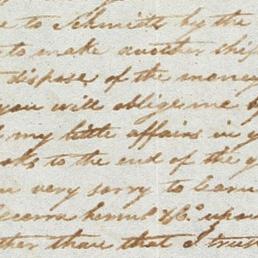 to Schmidt by the
to make another ship
dispose of the money
you will oblige me
my little affairs in
to the end of the
very sorry to learn
&Co. upon
ther than that I trust